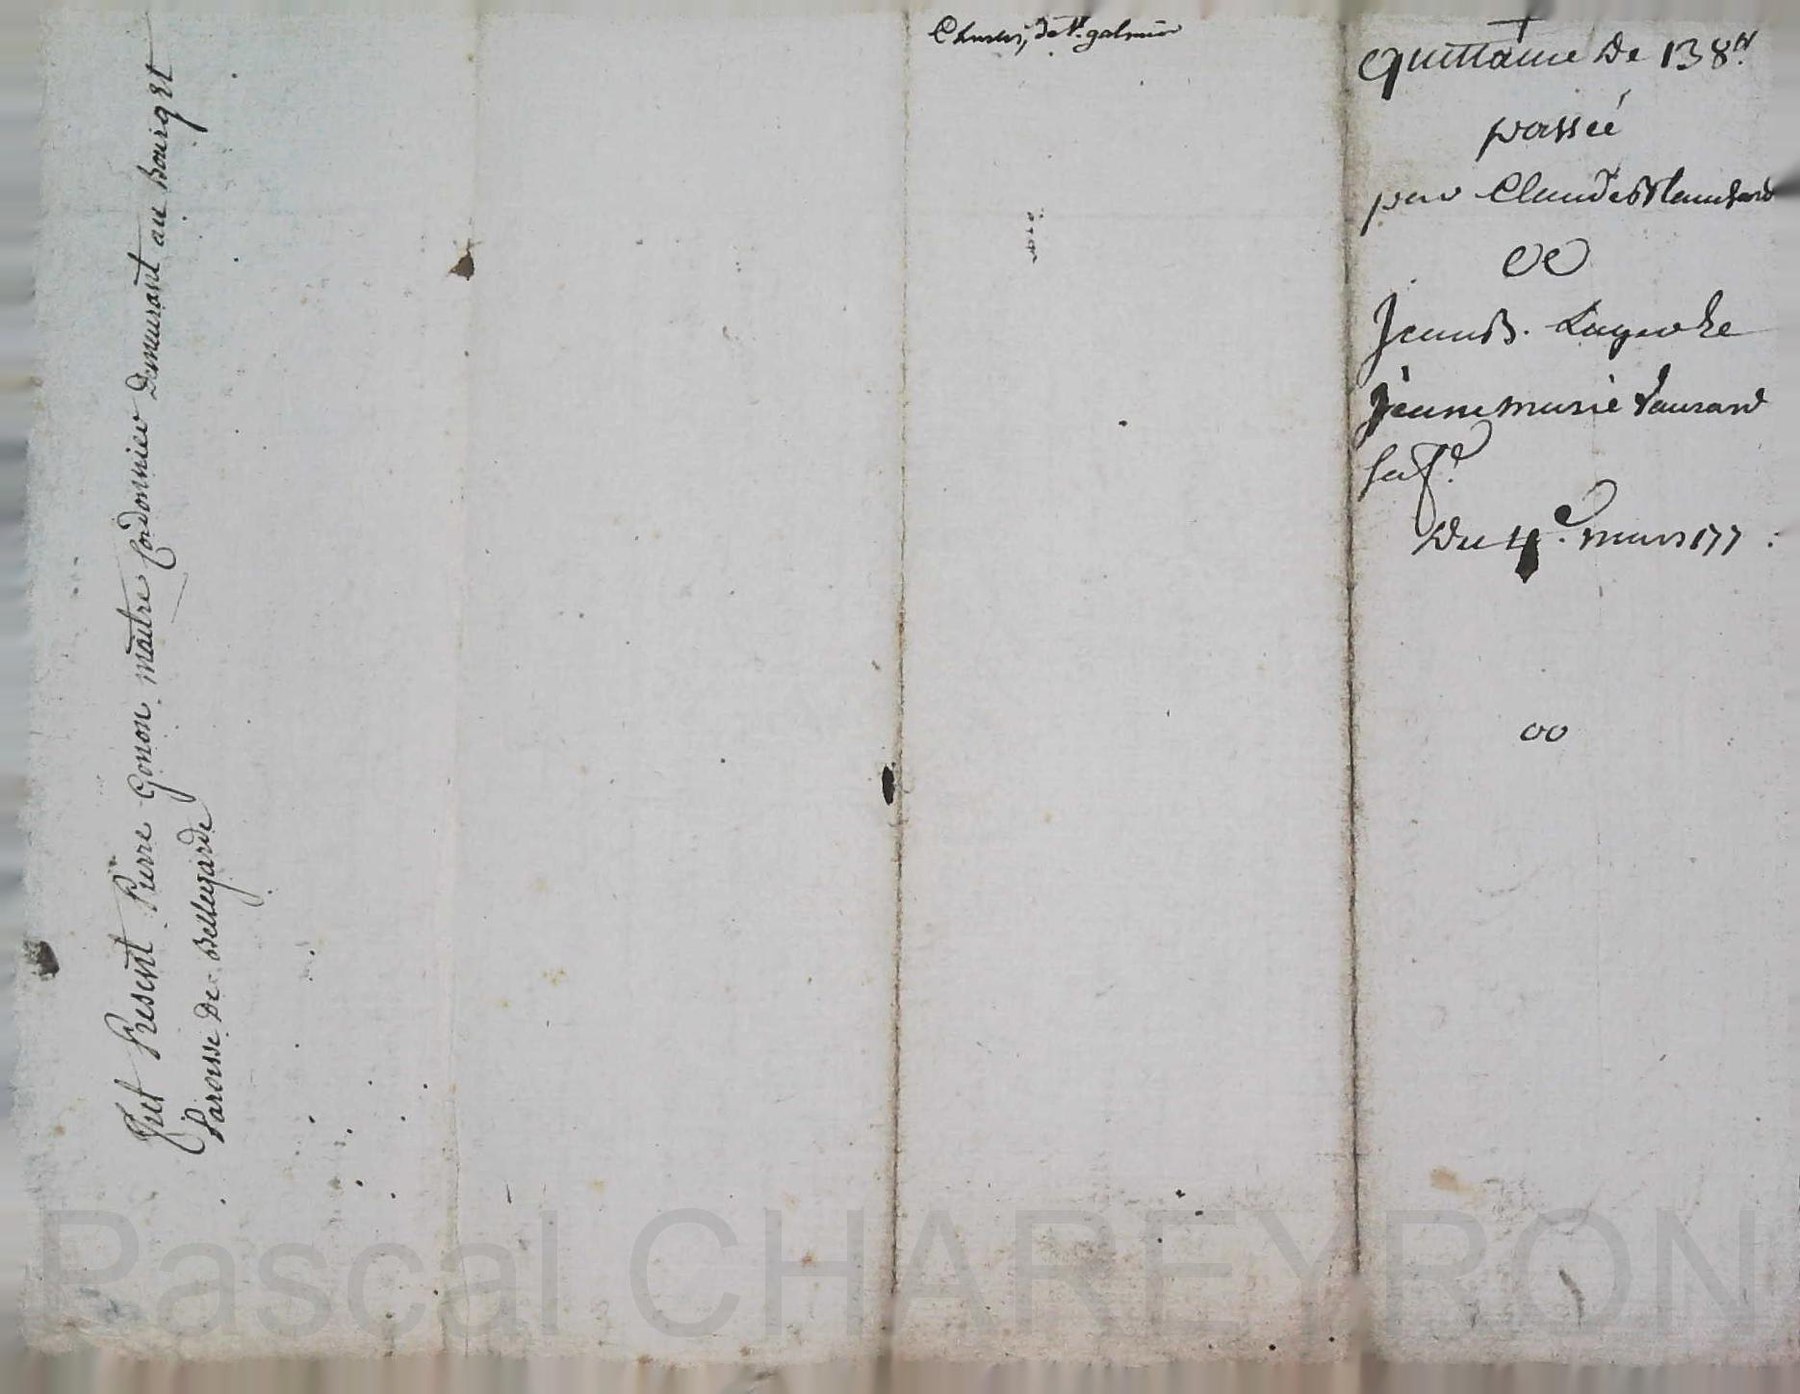 Quittance De 138#
passée
par Claude Blanchard
a
Jean B. Laroche
jeanne marie
sa f.e
Du 4e. mars 177
de St. galmier
Fut Present Pierre Gonon maitre Cordonnier Demeurant au Bourg et
Paroisse De Bellegarde
Pascal CHAREYRON